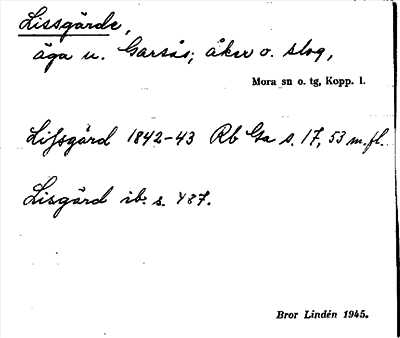 Lissgärde,
äga u. Garsås; åker o. slog,
Mora sn o. tg, Kopp. l.
Lissgärd 1842-43 Rb Ga s. 17, 53 m.fl.
Lisgärd ib. s. 487.
Bror Lindén 1945.